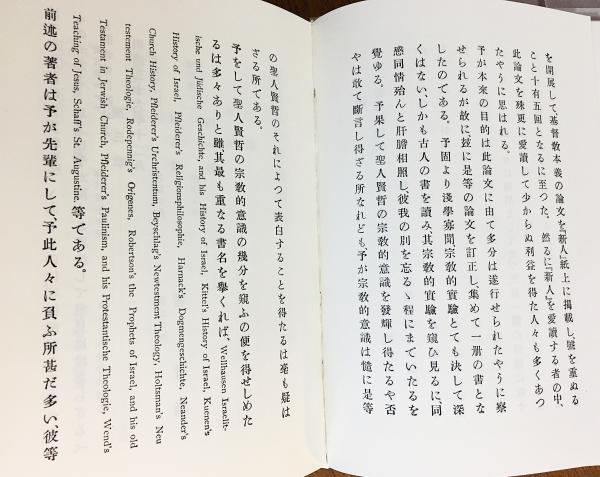 を開展して基督教本義の論文を『新人』紙上に掲載し號を重ぬる
こと十有五回となるに至つた。然るに『新人』を愛讀する者の中、
此論文を殊更に愛讀して少からぬ利益を得た人々も多くあつ
たやうに思はれる。
予が本來の目的は此論文に由て多分は遂行せられたやうに察
せられるが故に、玆に是等の論文を訂正し、集めて一册の書とな
したのである。予固より淺學寡聞宗教的實驗とても決して深
くはない、しかも古人の書を讀み、其宗教的實驗を窺ひ見るに、同
感同情殆んと肝膽相照し、彼我の別を忘るゝ程にまでいたるを
覺ゆる。予果して聖人賢哲の宗教的意識を發揮し得たるや否
やは敢て斷言し得ざる所なれども、予が宗教的意識は慥に是等
の聖人賢哲のそれによつて表白することを得たるは毫も疑は
ざる所である。
予をして聖人賢哲の宗教的意識の幾分を窺ふの便を得せしめた
るは多々ありと雖、其最も重なる書名を擧くれば、Wellhausen Israelit-
ische und Jüdische Geschichte, and his History of Israel, Kittel's History of Israel, Kuenen's
History of Israel, Pfleiderer's Religionsphilosophie, Harnack's Dogmengeschichte, Neander's
Church History, Pfleiderer's Urchristentum, Beyschlag's Newtestment Theology, Holtsman's Neu
testement Theologie, Rodepennig's Origenes, Robertson's the Prophets of Israel, and his old
Testament in Jerwish Church, Pfleiderer's Paulinism, and his Protestantische Theologie, Wend's
Teaching of Jesus, Schaff's St. Augustine. 等である。
前述の著者は予が先輩にして、予此人々に負ふ所甚だ多い、彼等